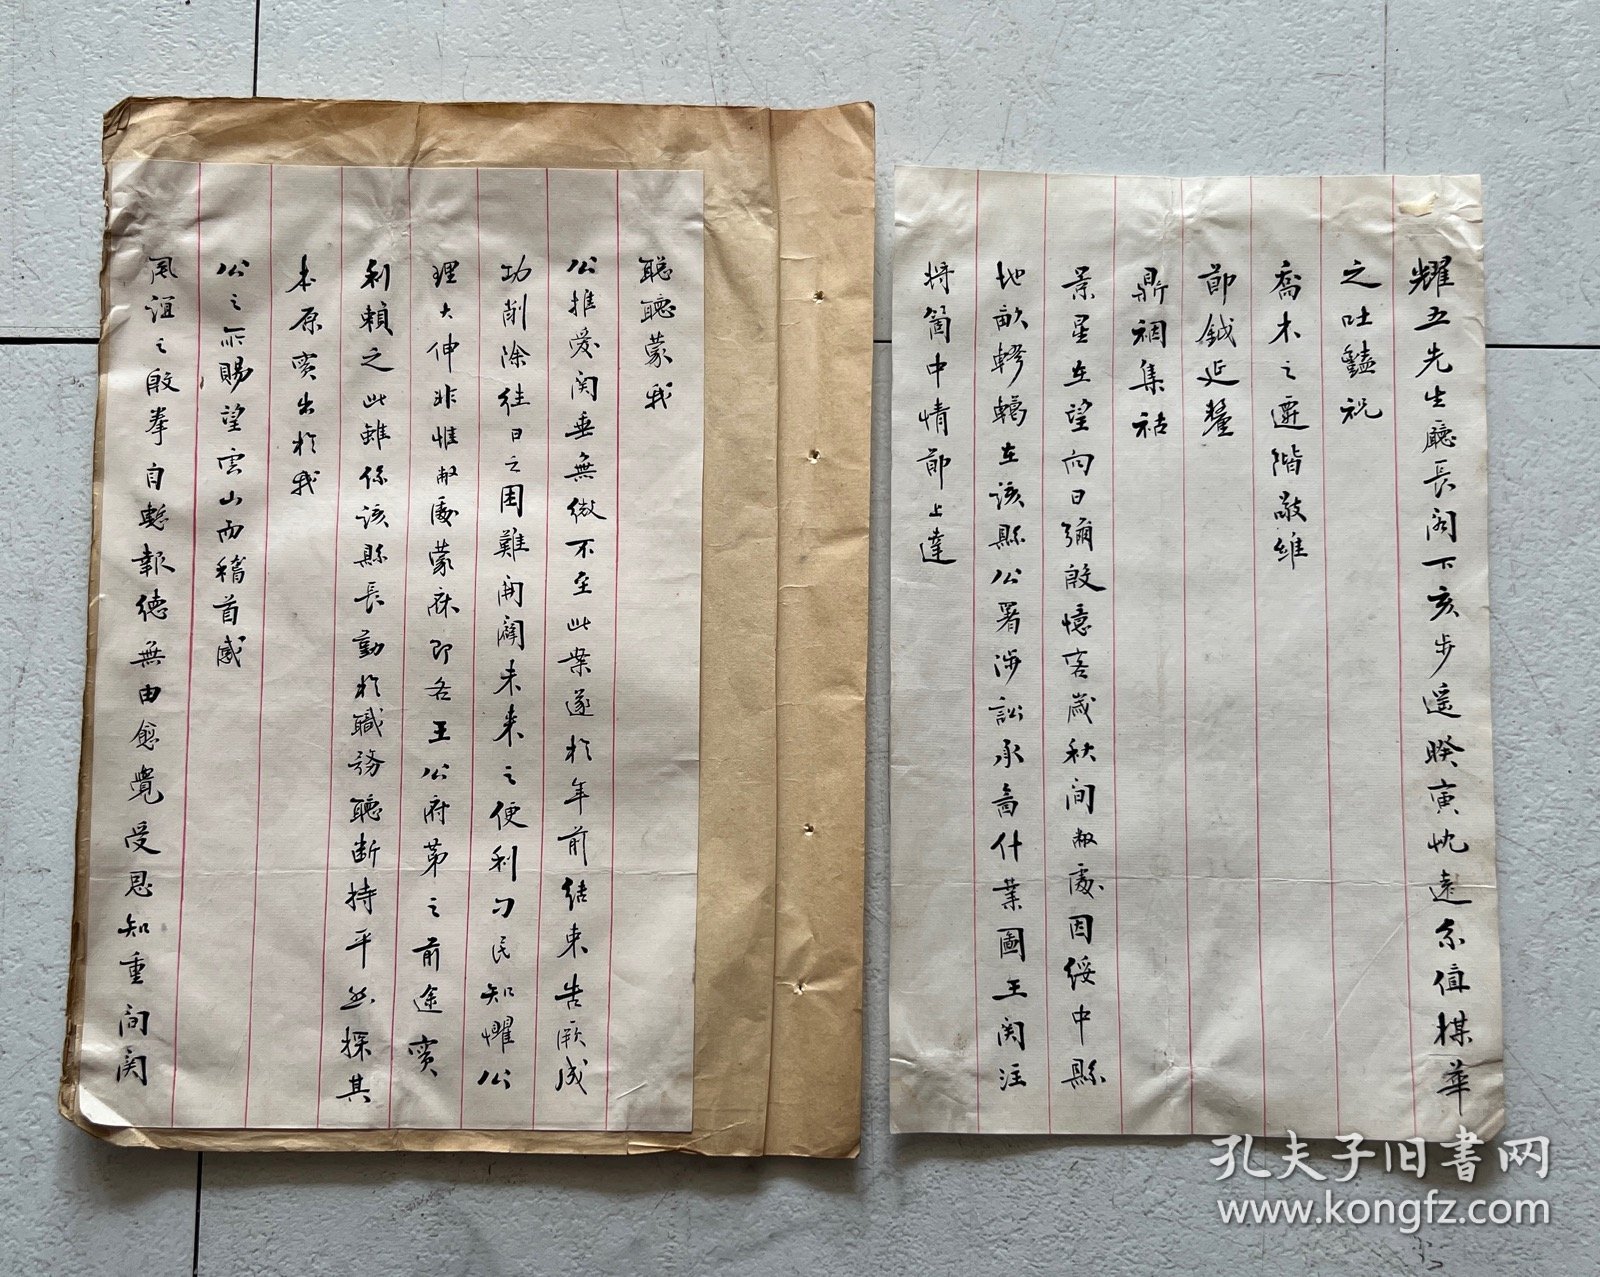 耀五先生廳長閣下亥步遥暌寅忱遠企值棋華
之吐豔祝
喬木之遷階敬維
節鉞延釐
鼎祺集祜
景星在望向日彌殷憶客歲秋间敝處因綏中縣
地畝轇轕在該縣公署涉訟承啚什業圖王関注
将箇中情節上達
聪聽蒙我
公推愛関垂無微不至此案遂於年前結束告厥成
功削除往日之困難開闢未来之便利刁民知懼公
理大伸非惟敝處蒙庥即各王公府第之前途實
利賴之此雖係該縣長勤於職務聽断持平然探其
本原实出於我
公之所賜望雲山而稽首感
風誼之殷拳自慙報德無由愈覺受恩知重间関
孔夫子旧書网
www.kongfz.com